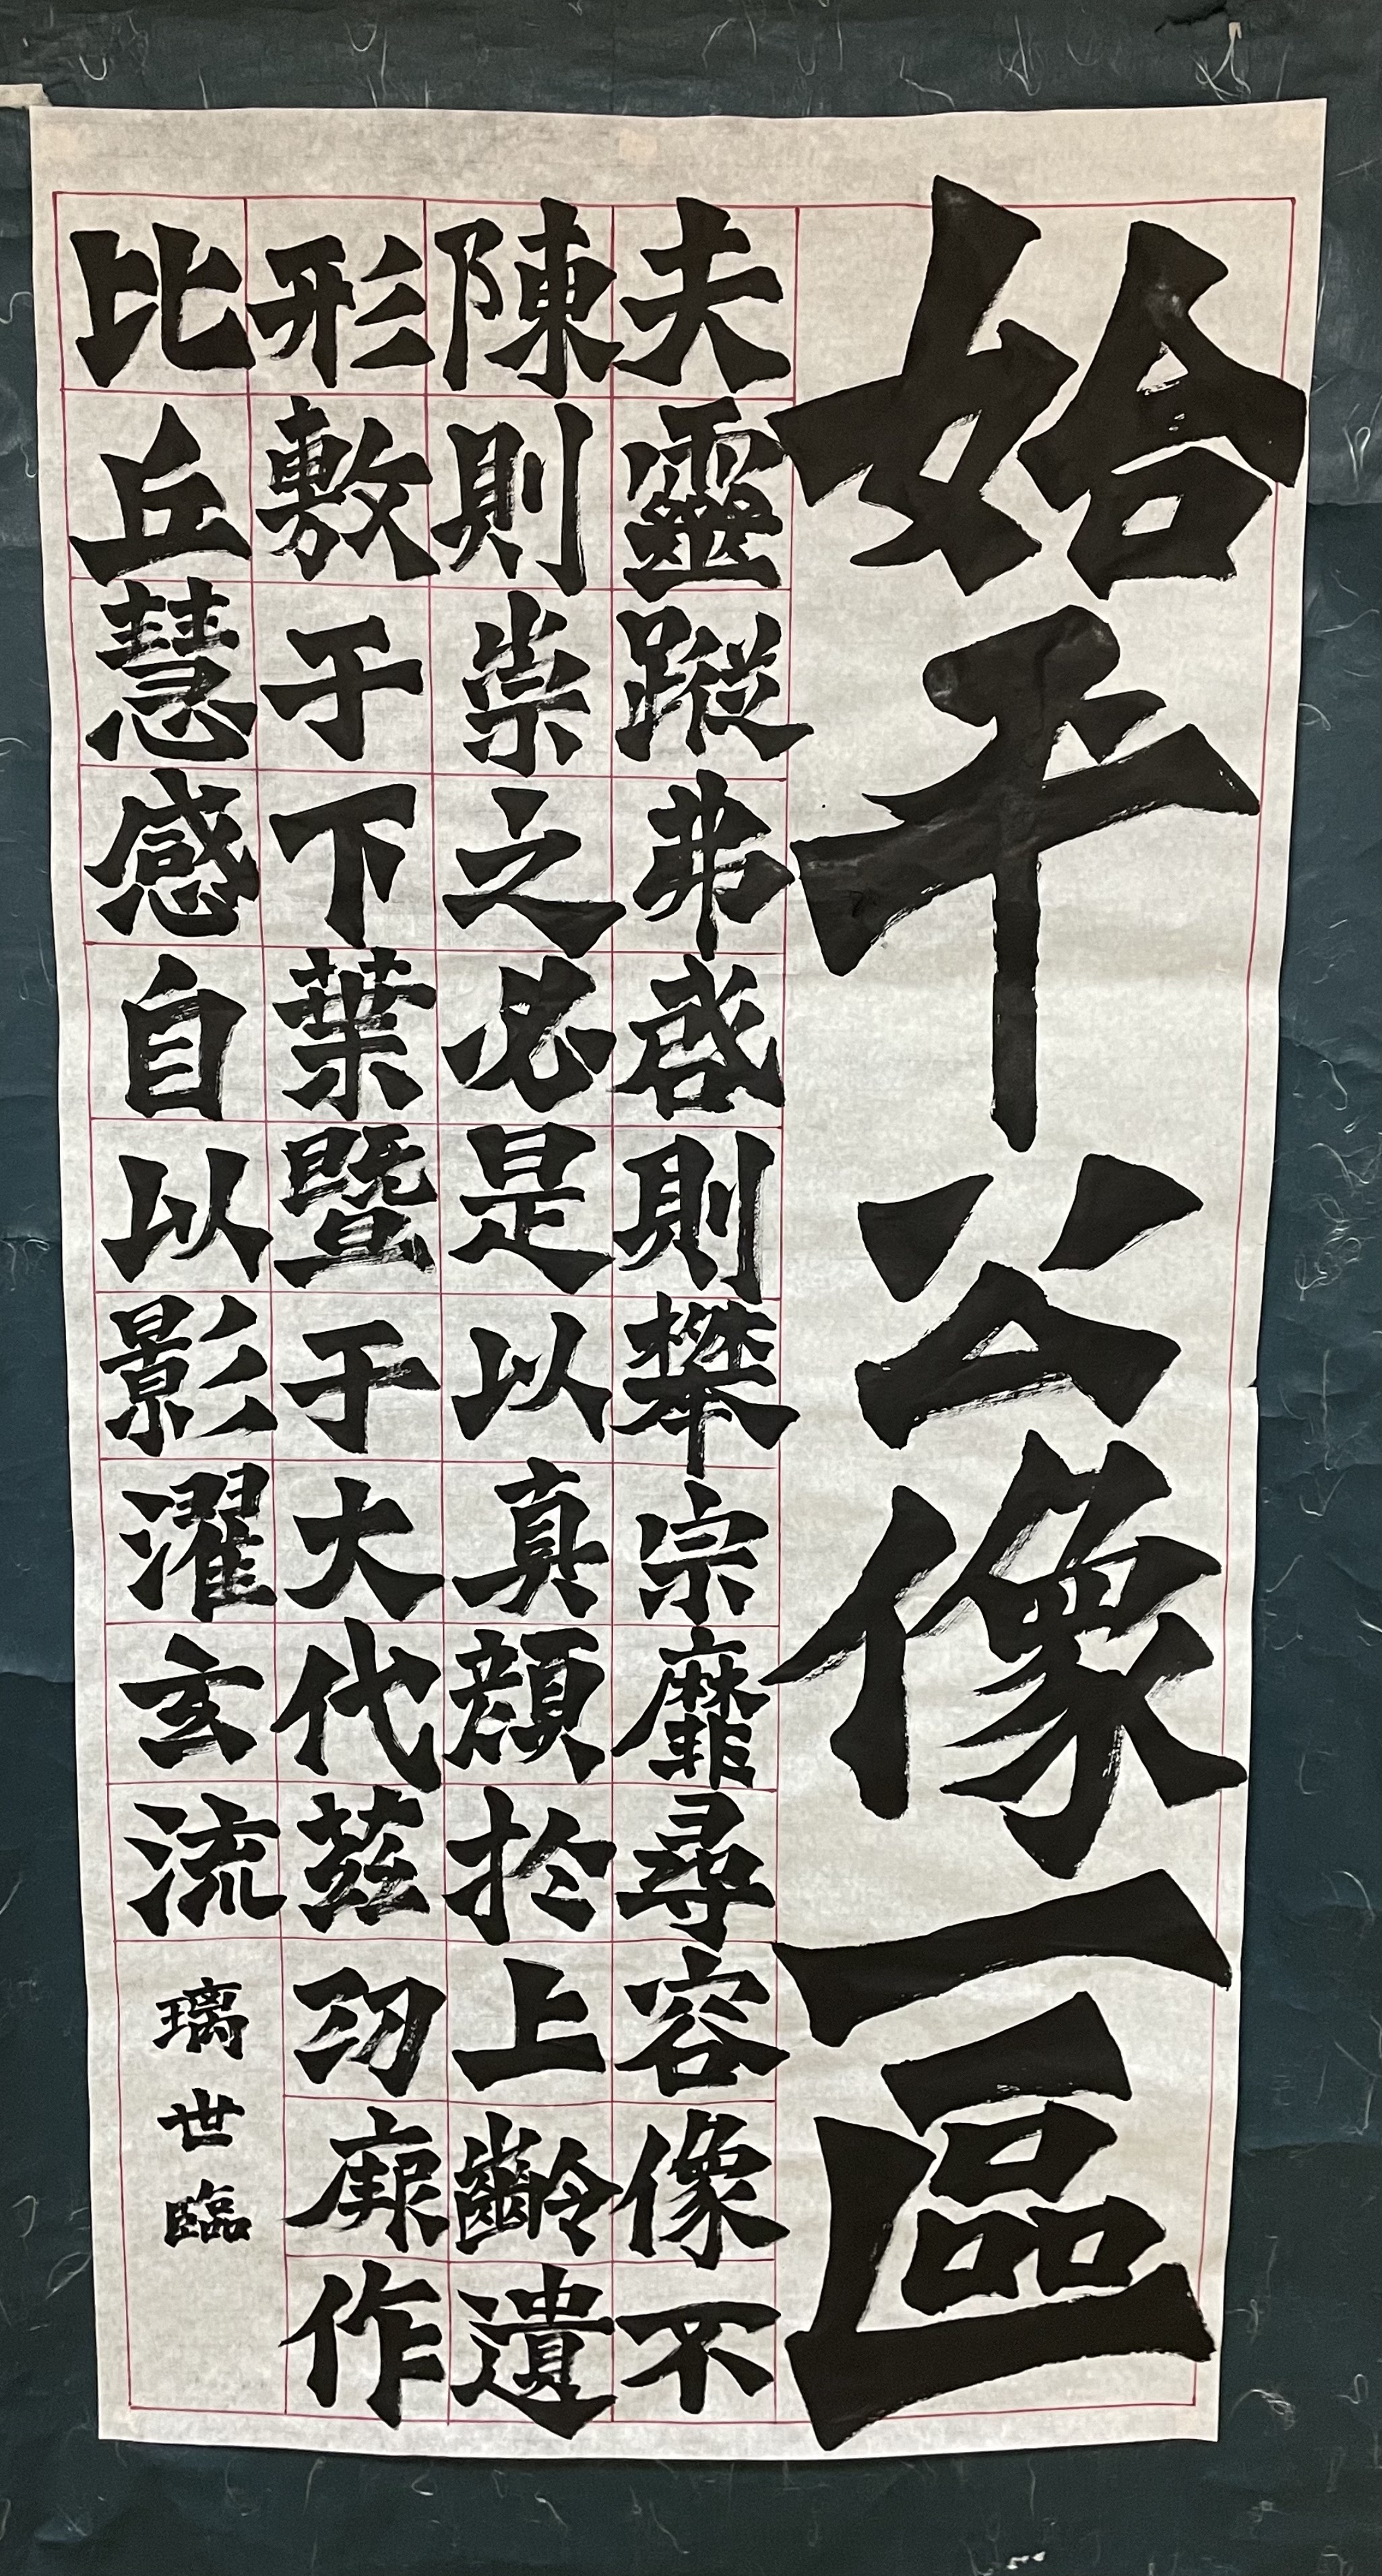 始平公像一區
夫靈蹤弗啓則攀宗靡尋容像不
陳則崇之必是以真顏於上齡遺
形敷于下葉暨于大代茲功厥作
比丘慧感自以影濯玄流
璃世臨